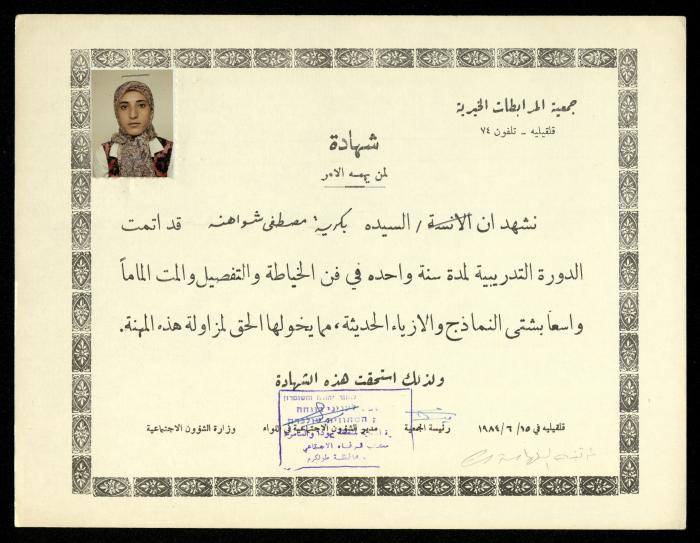 جمعية المرابطات الخيرية
قلقيليه - تلفون ٧٤
شهادة
لمن يهمه الامر
نشهد ان الآنسة / السيده بكرية مصطفى شواهنه قد اتمت
الدورة التدريبية لمدة سنة واحده في فن الخياطة والتفصيل والمت الماماً
واسعاً بشتى النماذج والازياء الحديثة، مما يخولها الحق لمزاولة هذه المهنة.
ولذلك استحقت هذه الشهادة
قلقيليه في ١٩٨٤/٦/١٥ رئيسة الجمعية مدير الشؤون الاجتماعية في اللواء وزارة الشؤون الاجتماعية